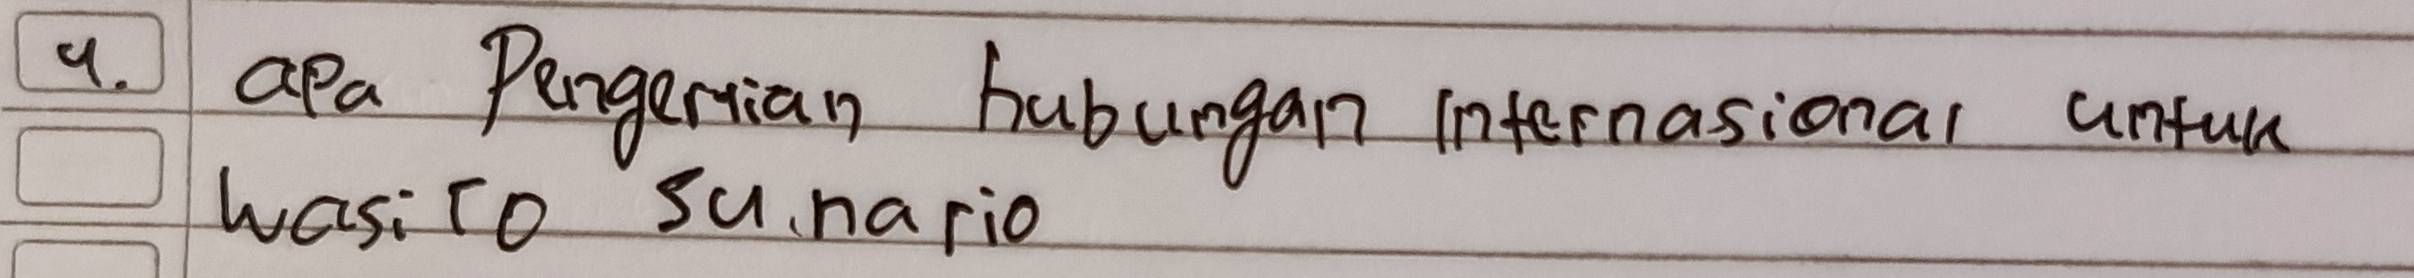 4. apa Pengertian hubungan internasional untuk
wasito su.nario